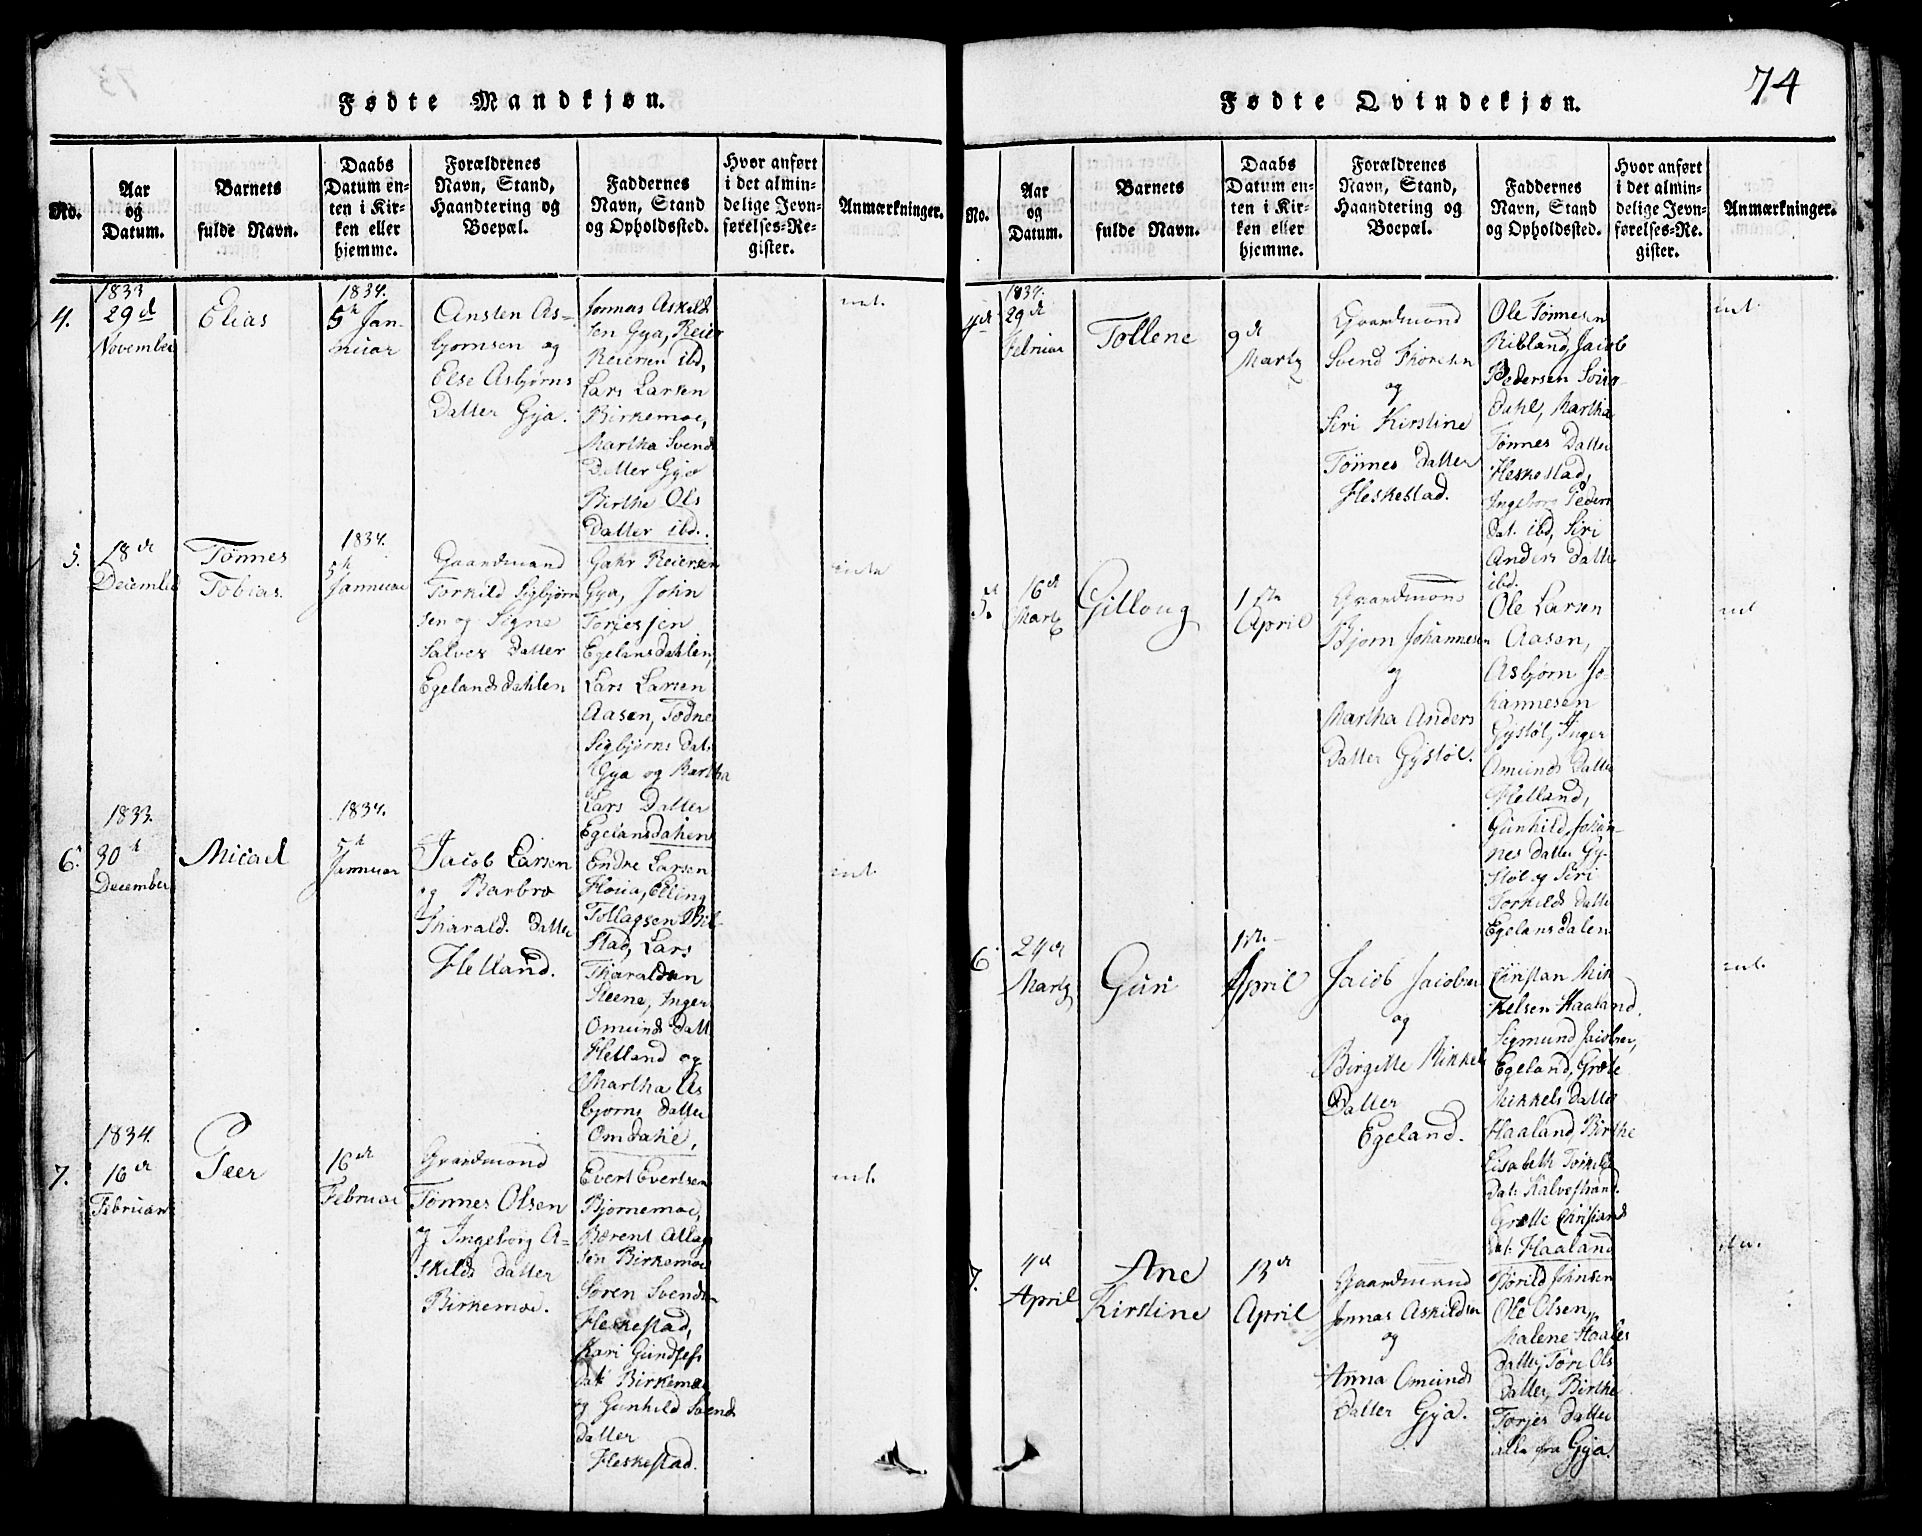 Fødte Mandkjøn.
No.
Aar
og
Datum.
Barnets
fulde Navn.
Daabs
Datum en-
ten i Kir-
ken eller
hjemme.
Forældrenes
Navn, Stand,
Haandtering og
Boepæl.
Faddernes
Navn, Stand
og Opholdssted.
Hvor anført
i det almin-
delige Jevn-
førelses-Re-
gister.
Anmærkninger.
4.
1833
29de
November
Elias
1834.
5te Jan-
nuar
Ansten As-
bjornsen og
Else Asbjørns
Datter Gya.
Jonnas Askild
sen Gya, Reier
Reiersen ibd,
Lars Larsen
Birkemoe,
Martha Svends
Datter Gya
Birthe Ols
Datter ibd.
int.
5.
18de
December
Tønnes
Tobias.
1834.
5te
Jannuar
Gaardmand
Torkild Sigbjørn
sen og Signe
Salves Datter
Egelandsdahlen
Gahr Reiersen
Gya, John
Torjesjen
Egelansdahlen,
Lars Larsen
Aasen, Todne
Sigbjørns Dat:
Gya og Martha
Lars Datter
Egelansdahen
inte
6.
1833.
30te
December
Micael
1834.
5te
Jannuar
Jacob Larsen
og Barbro
Tharald. Datter
Helland.
Endre Larsen
Houa, Elling
Tollagsen Bil-
stad, Lars
Tharaldsen
Steene, Inger
Omunds Datt
Helland og
Martha As
bjorns Datter
Omdahl,
int.
7.
1834.
16de
Februar
Peer
16de
Februar
Graardmand
Tønnes Olsen
og Ingeborg A-
skilds Datter
Birkemoe.
Evert Evertsen
Bjørnemoe,
Bærent Atlag
sen Birkemoe
Søren Svends-
Heskestad,
Kari Gundsess
Dat: Birkemoe
og Gunhild Svends
Datter
Heskestad.
int.
74
Fødte Qvindekjøn.
No.
Aar
og
Datum.
Barnets
fulde Navn.
Daabs
Datum en-
ten i Kir-
ken eller
hjemme.
Forældrenes
Navn, Stand,
Haandtering og
Boepæl.
Faddernes
Navn, Stand
og Opholdssted.
Hvor anført
i det almin-
delige Jevn-
førelses-Re-
gister.
Anmærkninger.
4de
1834.
29de
Februar
Tollene
9de
Martz
Graardmand
Svend Thorsen
og
Siri Kirstine
Tønnes Datter
Heskestad.
Ole Tønnesen
Ribland, Jacob
Pedersen Soug-
dahl, Martha
Tønnes Datter
Heskestad,
Ingeborg Peders
Dat. ibd, Siri
Anders Datter
ibd.
int.
5.
16de
Martz
Gilloug
1ste
April
Graardmans
Bjorn Johannesen
og
Martha Anders
Datter Gystøl.
Ole Larsen
Aasen,
Asbjørn Jo-
hannesen
Gystøl, Inger
Omunds Datter
Helland,
Gunhild Johan-
nes Datter Gy-
støl og Siri
Torkilds Datter
Egelansdalen
int
6.
24de
Martz
Guri
1ste
April
Jacob Jacobsen
og
Birgitte Mikkels
Datter
Egeland.
Christan Mik
kelsen Haaland.
Sigmund Jacobsen,
Egeland, Grete
Mikkels Datter
Haaland, Birthe
Lisabeth Torkels
Dat: Kalvestrand.
Grette Christians
Dat: Haaland
int.
7.
4de
April
Ane
Kirstine
13de
April
Gaardmand
Jonnas Askildsen
og
Anna Omunds
Datter Gya.
Torild Johnsen
Ole Olsen,
Malene Haales
Datter, Tori Ols
Datter, Birthe
Torjes Datter
alle fra Gya.